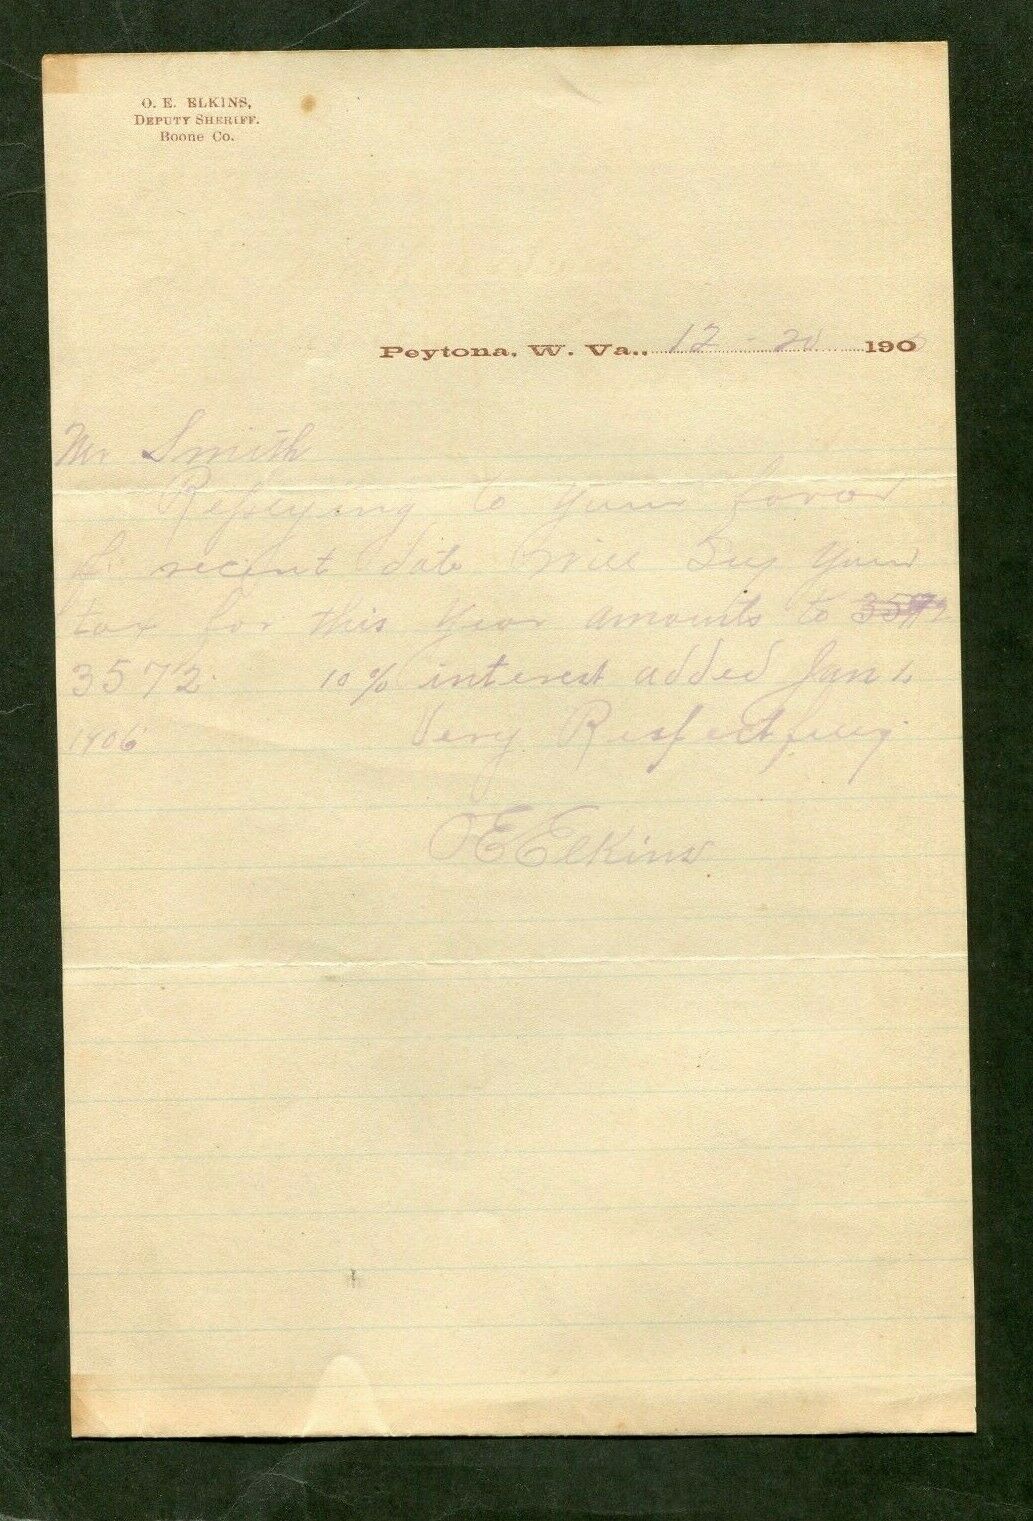 O. E. ELKINS,
DEPUTY SHERIFF.
Boone Co.
Peytona, W. Va., 12 - 20 190
Mr Smith
Replying to your favor
of recent date will say your
tax for this year amounts to 3572
3572 10% interest added Jan 1,
1906 Very Respectfully
O E Elkins